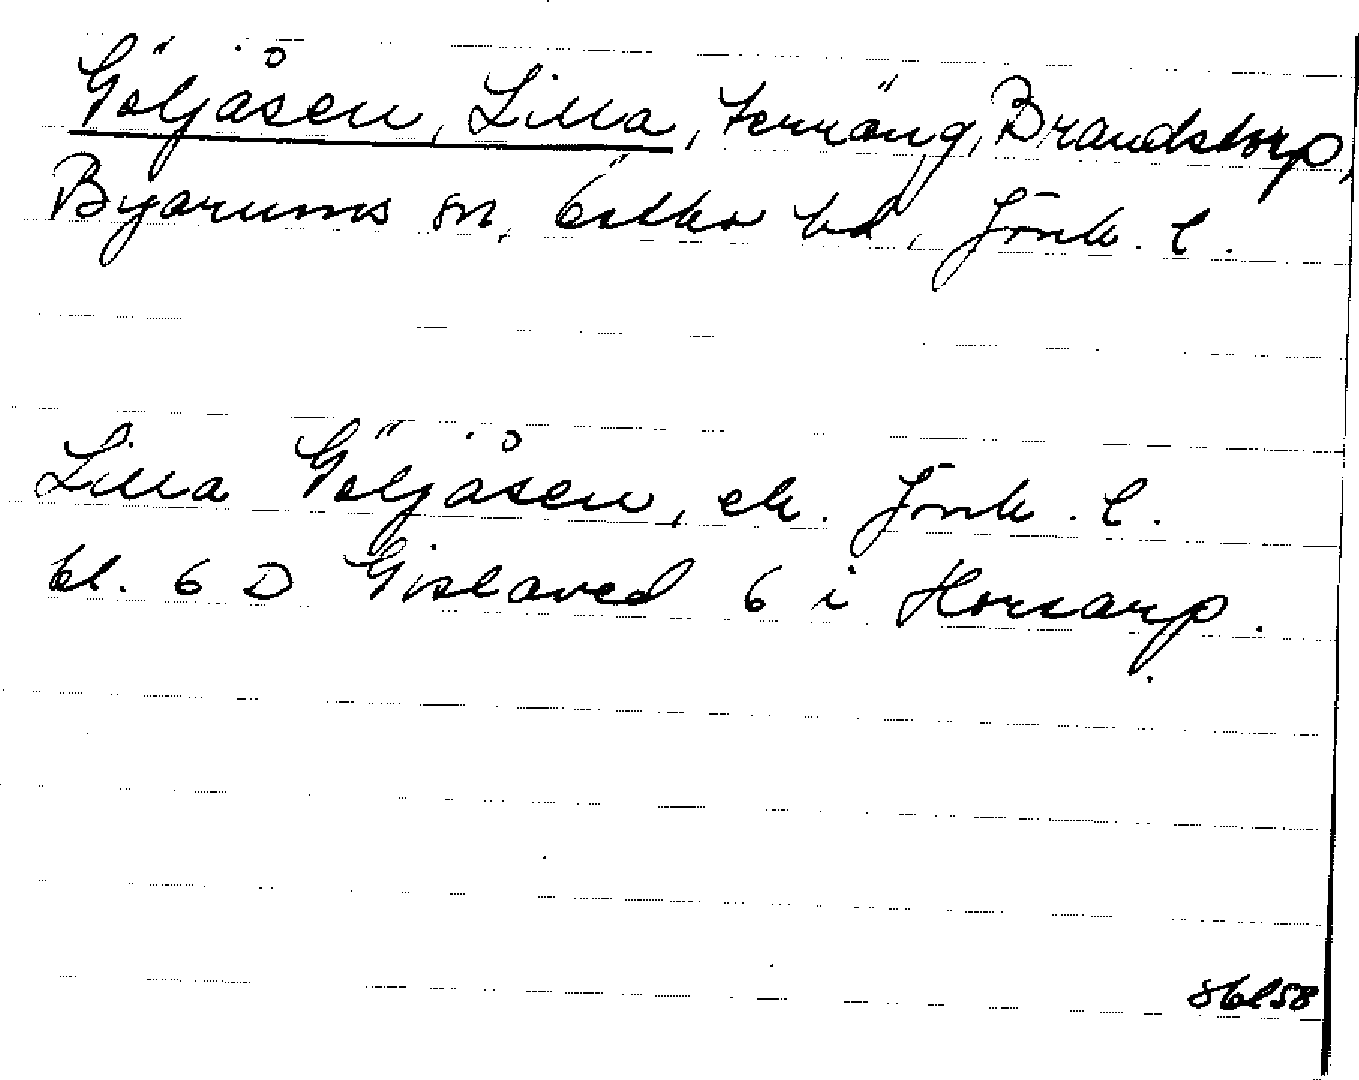 Göljåsen, Lilla, terräng, Brandstorp,
Byarums sn, Östbo hd, Jönk. l.
Lilla Göljåsen, ek. Jönk. l.
bl. 6 D Gislaved 6 i Horsarp.